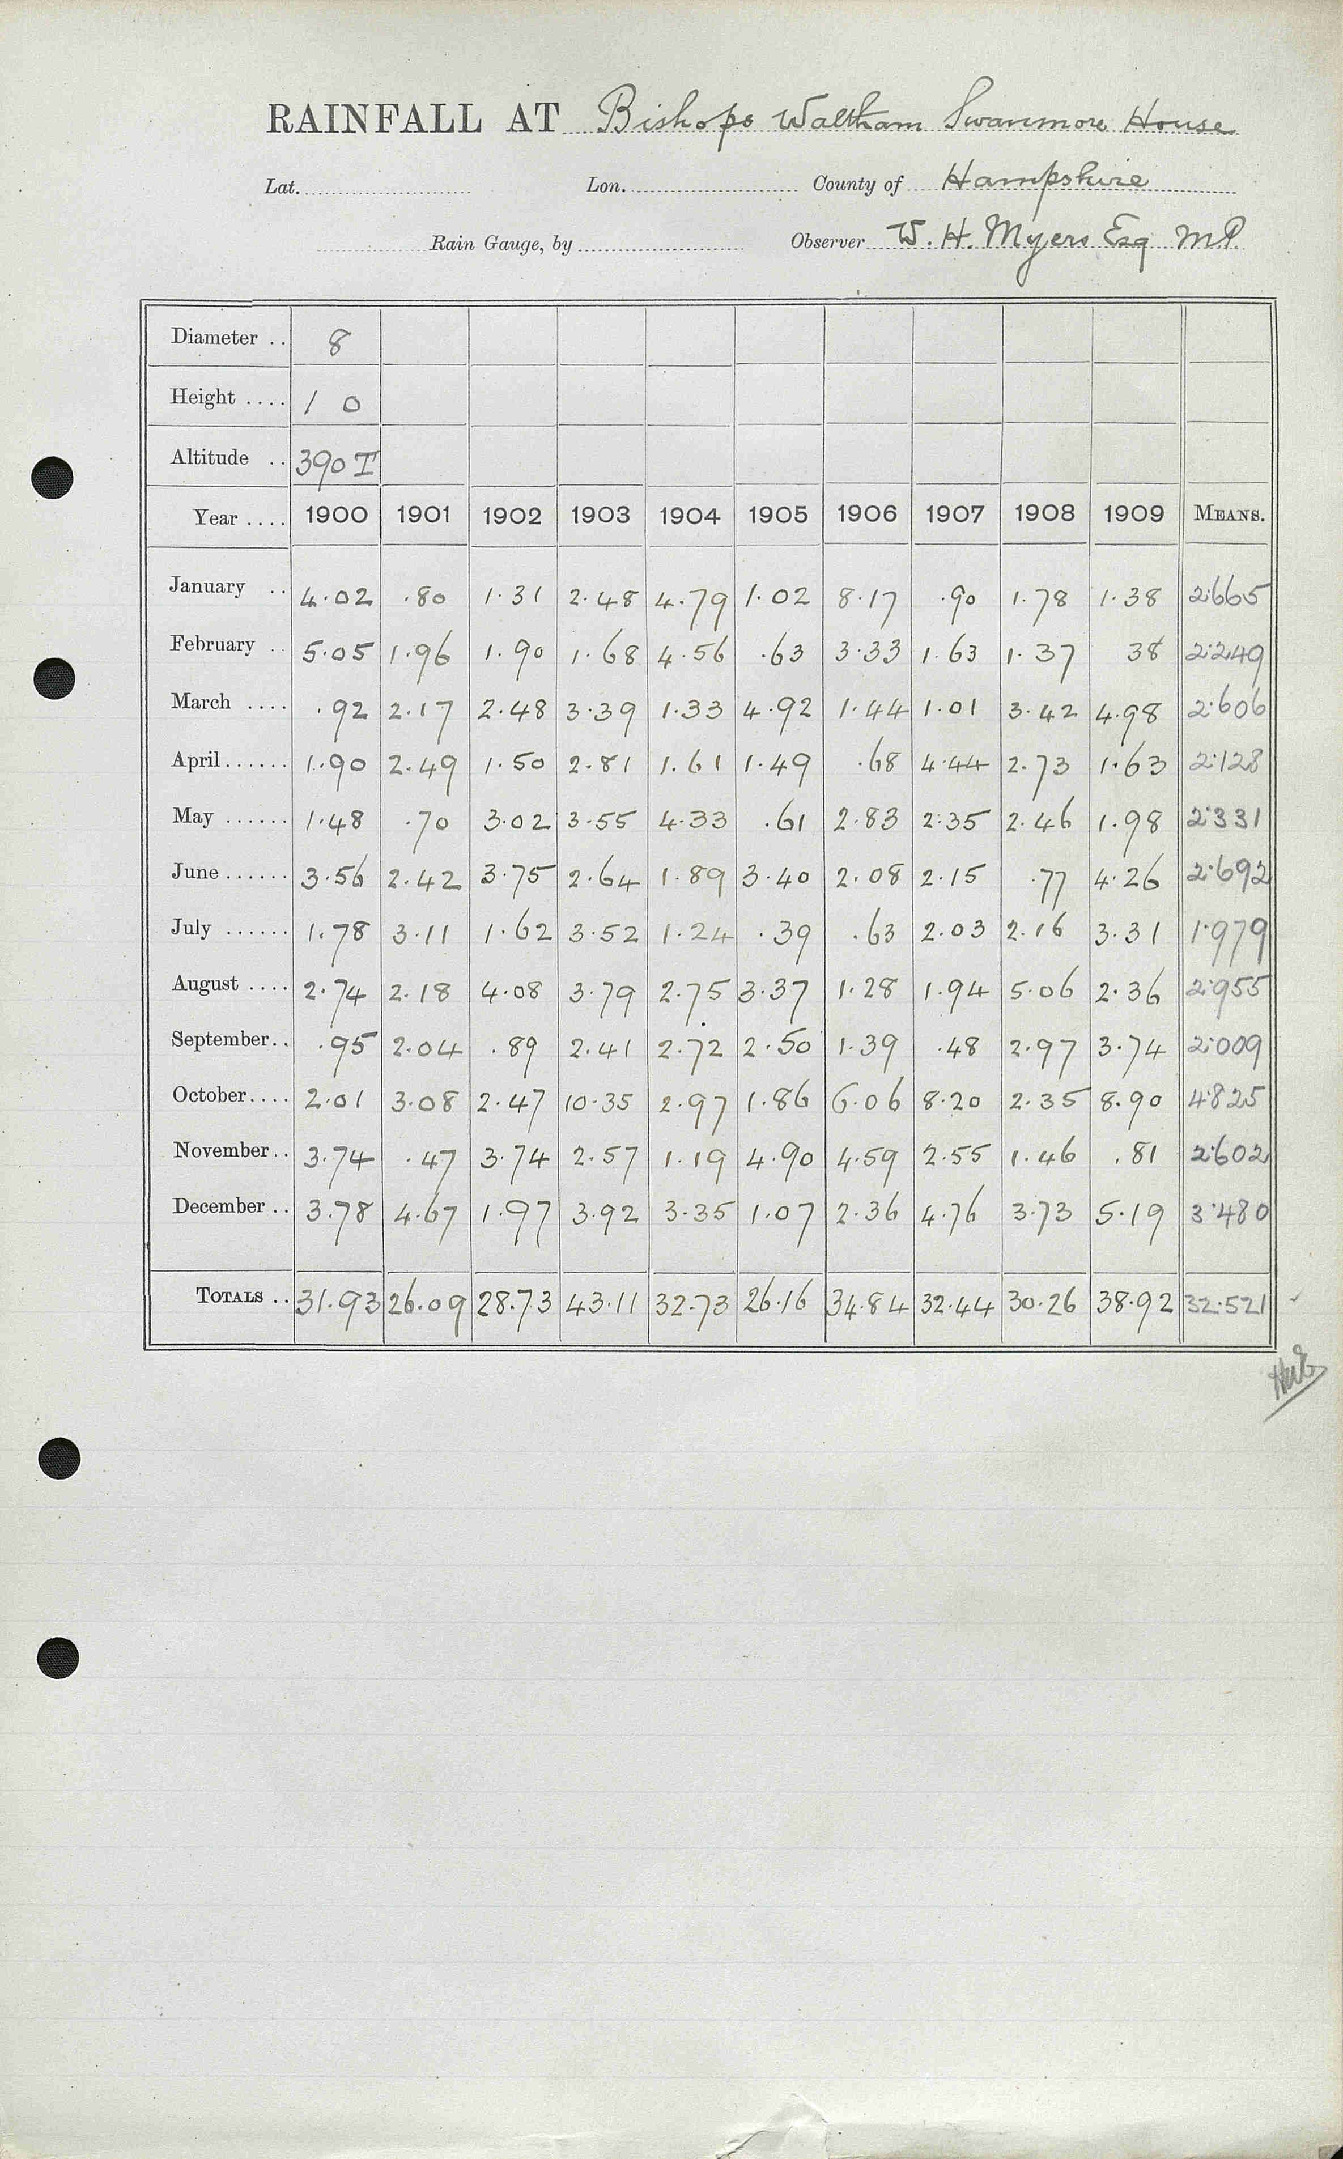 RAINFALL AT Bishops Waltham Swanmore House
Lat. Lon. County of Hampshire
Rain Gauge, by Observer W. H. Myers Esq M.P.
Diameter .. 8
Height .... 1 0
Altitude .. 390 T
Year .... 1900 1901 1902 1903 1904 1905 1906 1907 1908 1909 MEANS.
January .. 4.02 .80 1.31 2.48 4.79 1.02 8.17 .90 1.78 1.38 2.665
February .. 5.05 1.96 1.90 1.68 4.56 .63 3.33 1.63 1.37 38 2.249
March .... .92 2.17 2.48 3.39 1.33 4.92 1.44 1.01 3.42 4.98 2.606
April ...... 1.90 2.49 1.50 2.81 1.61 1.49 .68 4.44 2.73 1.63 2.128
May ...... 1.48 .70 3.02 3.55 4.33 .61 2.83 2.35 2.46 1.98 2.331
June ...... 3.56 2.42 3.75 2.64 1.89 3.40 2.08 2.15 .77 4.26 2.692
July ...... 1.78 3.11 1.62 3.52 1.24 .39 .63 2.03 2.16 3.31 1.979
August .... 2.74 2.18 4.08 3.79 2.75 3.37 1.28 1.94 5.06 2.36 2.955
September .. .95 2.04 .89 2.41 2.72 2.50 1.39 .48 2.97 3.74 2.009
October .... 2.01 3.08 2.47 10.35 2.97 1.86 6.06 8.20 2.35 8.90 4.825
November .. 3.74 .47 3.74 2.57 1.19 4.90 4.59 2.55 1.46 .81 2.602
December .. 3.78 4.67 1.97 3.92 3.35 1.07 2.36 4.76 3.73 5.19 3.480
TOTALS .. 31.93 26.09 28.73 43.11 32.73 26.16 34.84 32.44 30.26 38.92 32.521